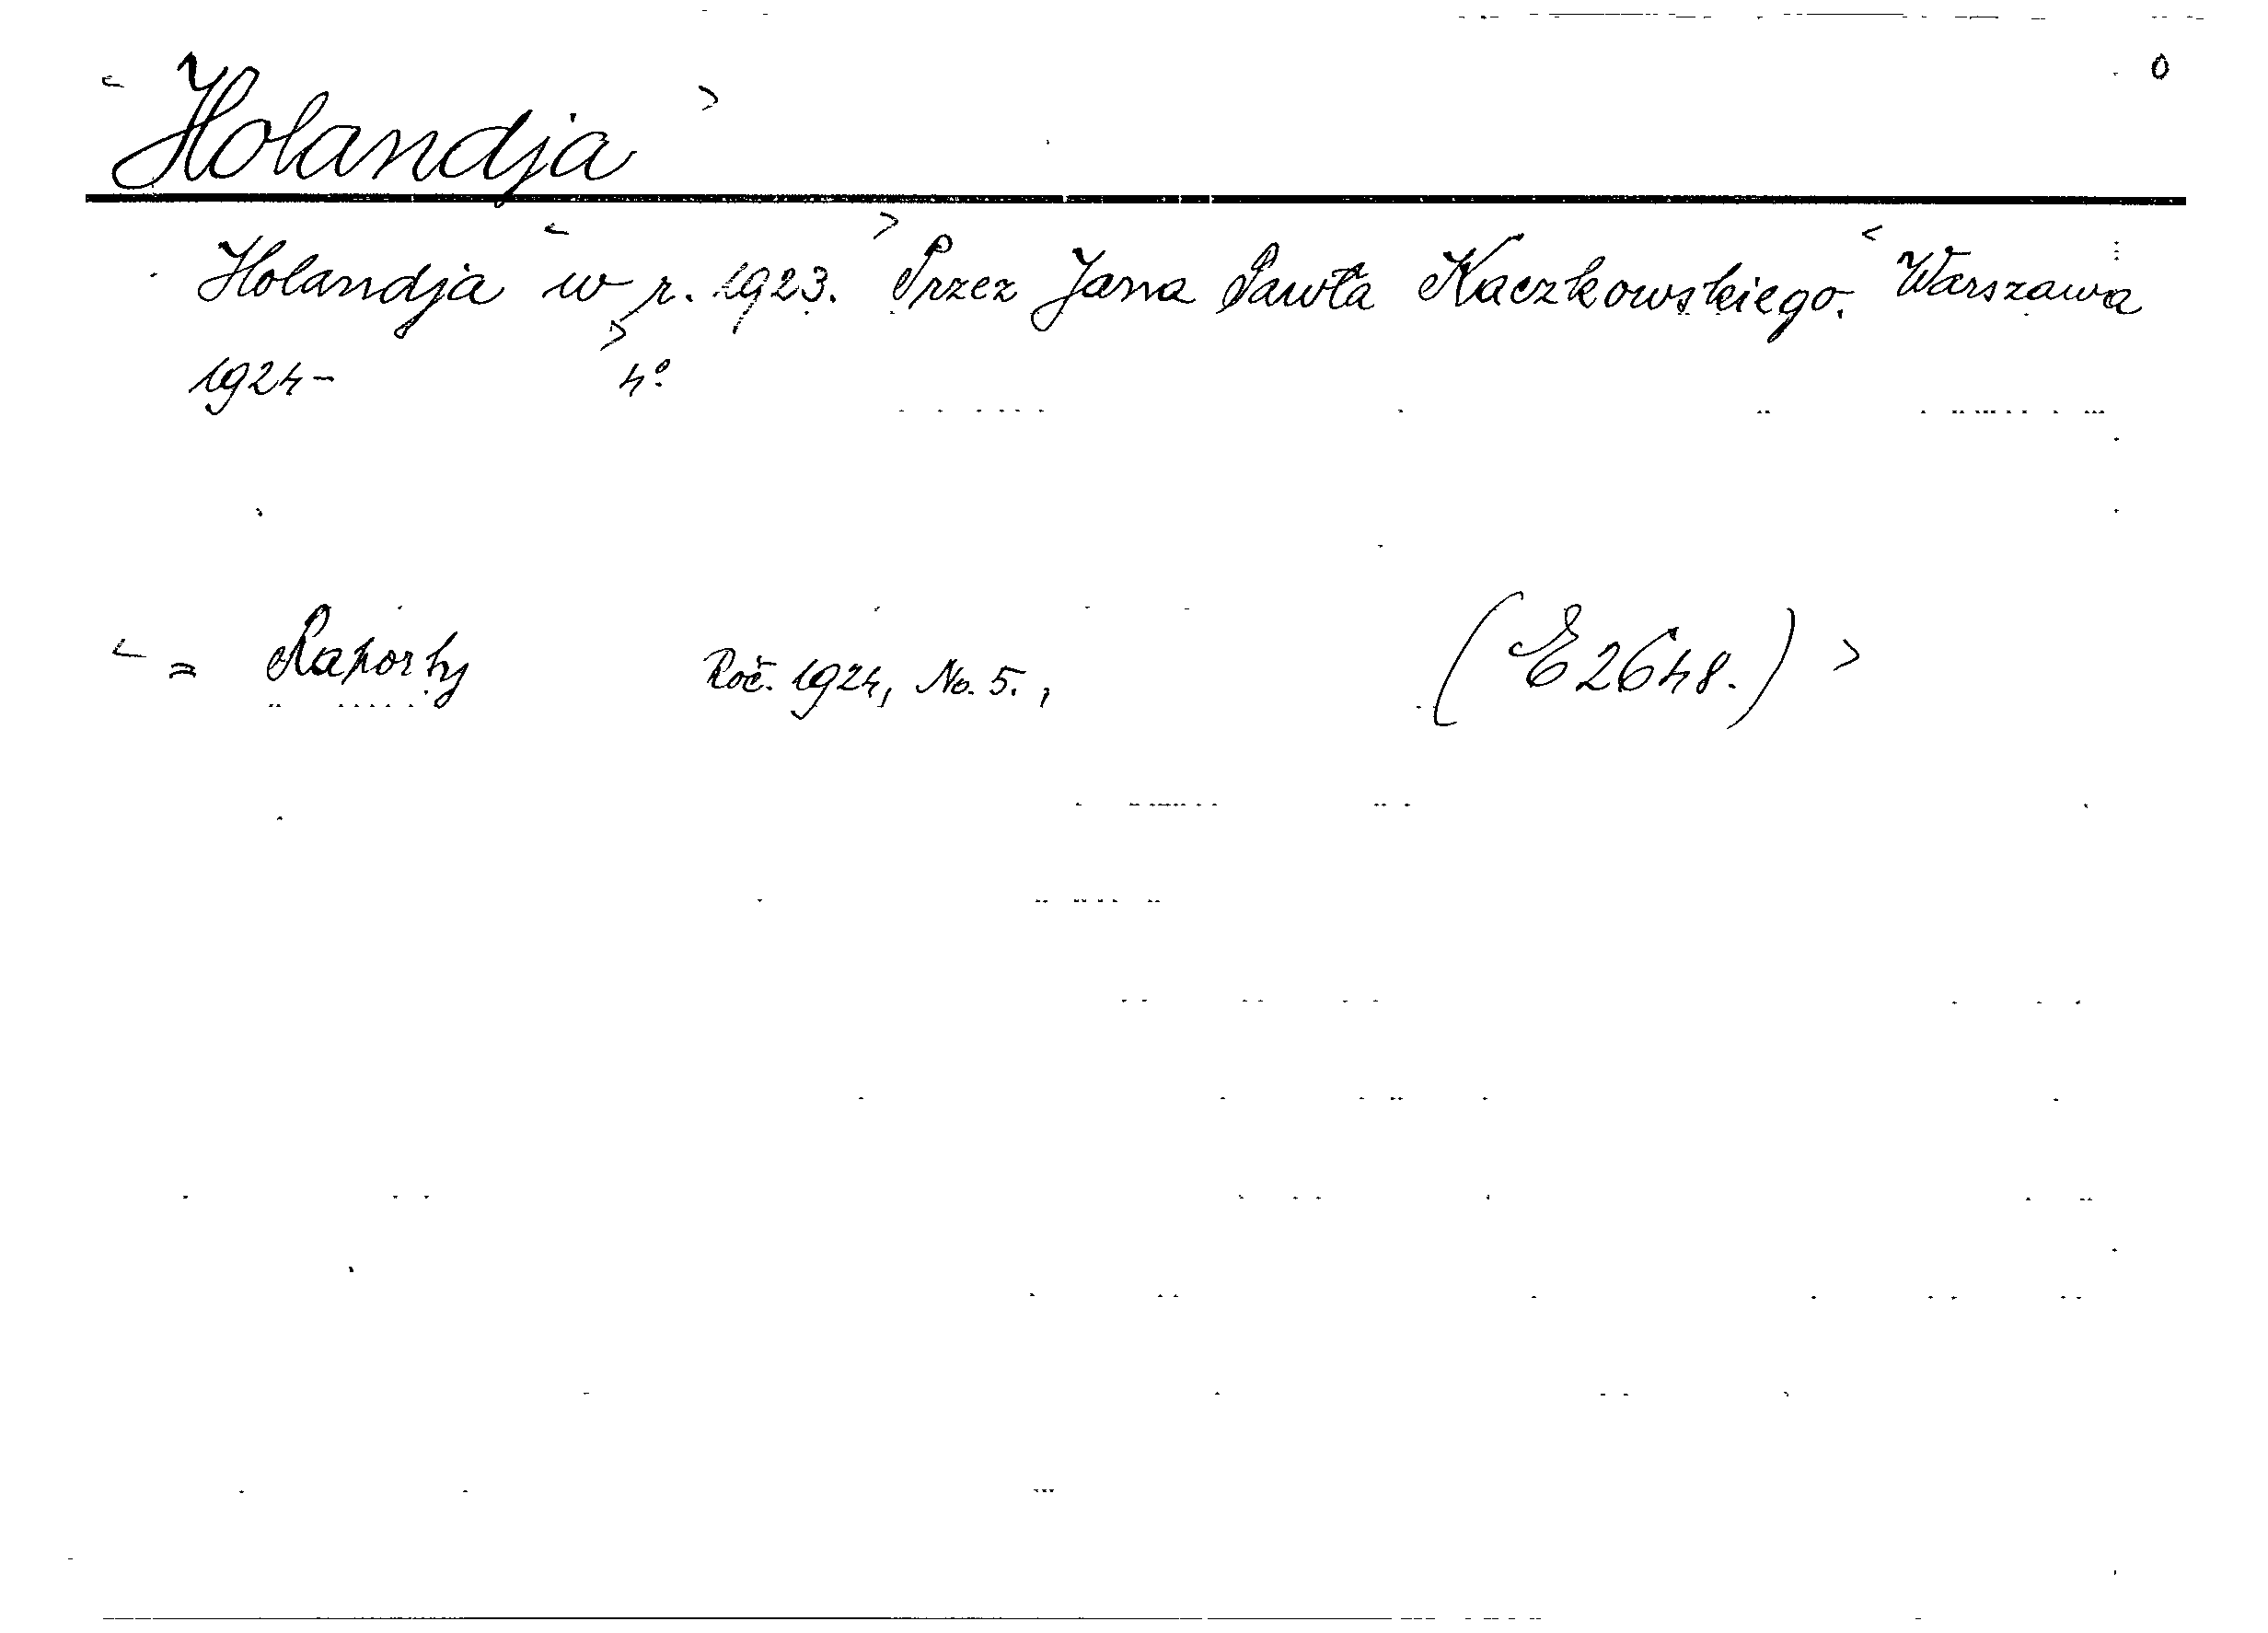 < Holandja > 0
Holandja < w r. 1923. > Przez Jana Pawła Kaczkowskiego. < Warszawa
1924- > 4°
< = Raporty Roč. 1924, No. 5., (E2648.) >